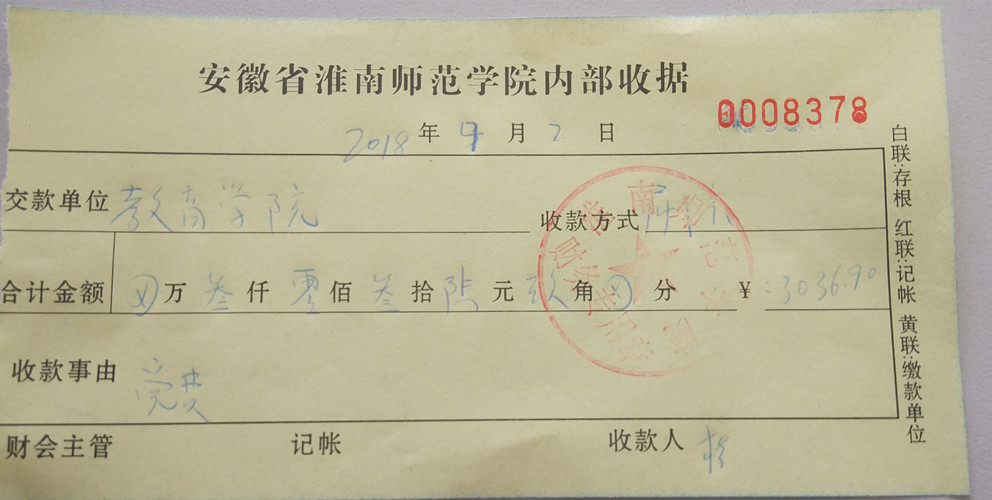 安徽省淮南师范学院内部收据
0008378
2018年9月2日
交款单位 教育学院 收款方式
合计金额 万叁仟零佰叁拾陆元玖角分 ¥:3036.90
收款事由 党费
财会主管 记帐 收款人
淮南师范学院
财务专用章
白联:存根 红联:记帐 黄联:缴款单位